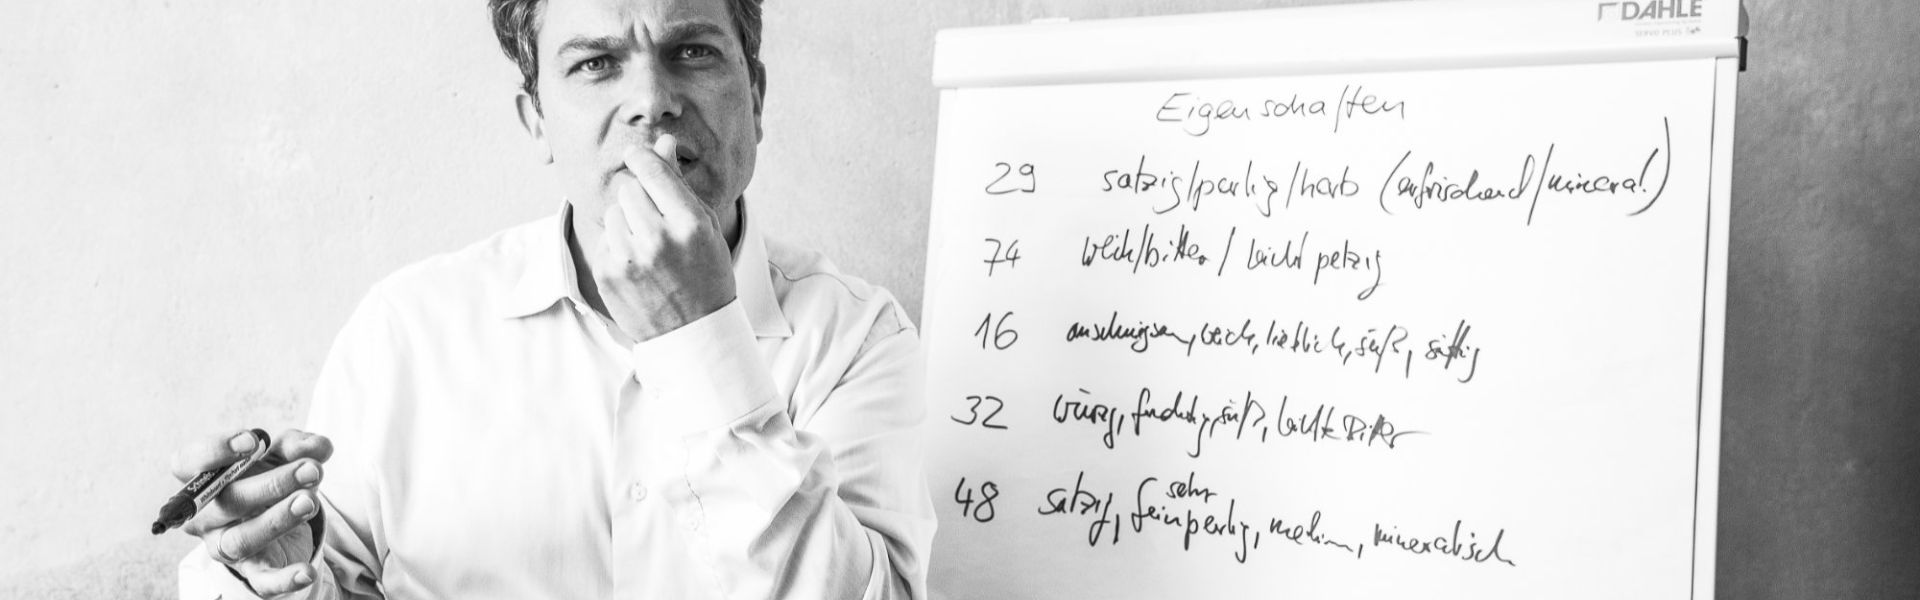 DAHLE
SERVO PLUS
Eigenschaften
29 salzig/perlig/herb (erfrischend/mineral.)
74 weich/bitter/leicht pelzig
16 anschmiegsam, weich, lieblich, süß, süffig
32 würzig, fruchtig, süß, leichte Bitter
48 salzig, sehr feinperlig, medium, mineralisch
Schneider